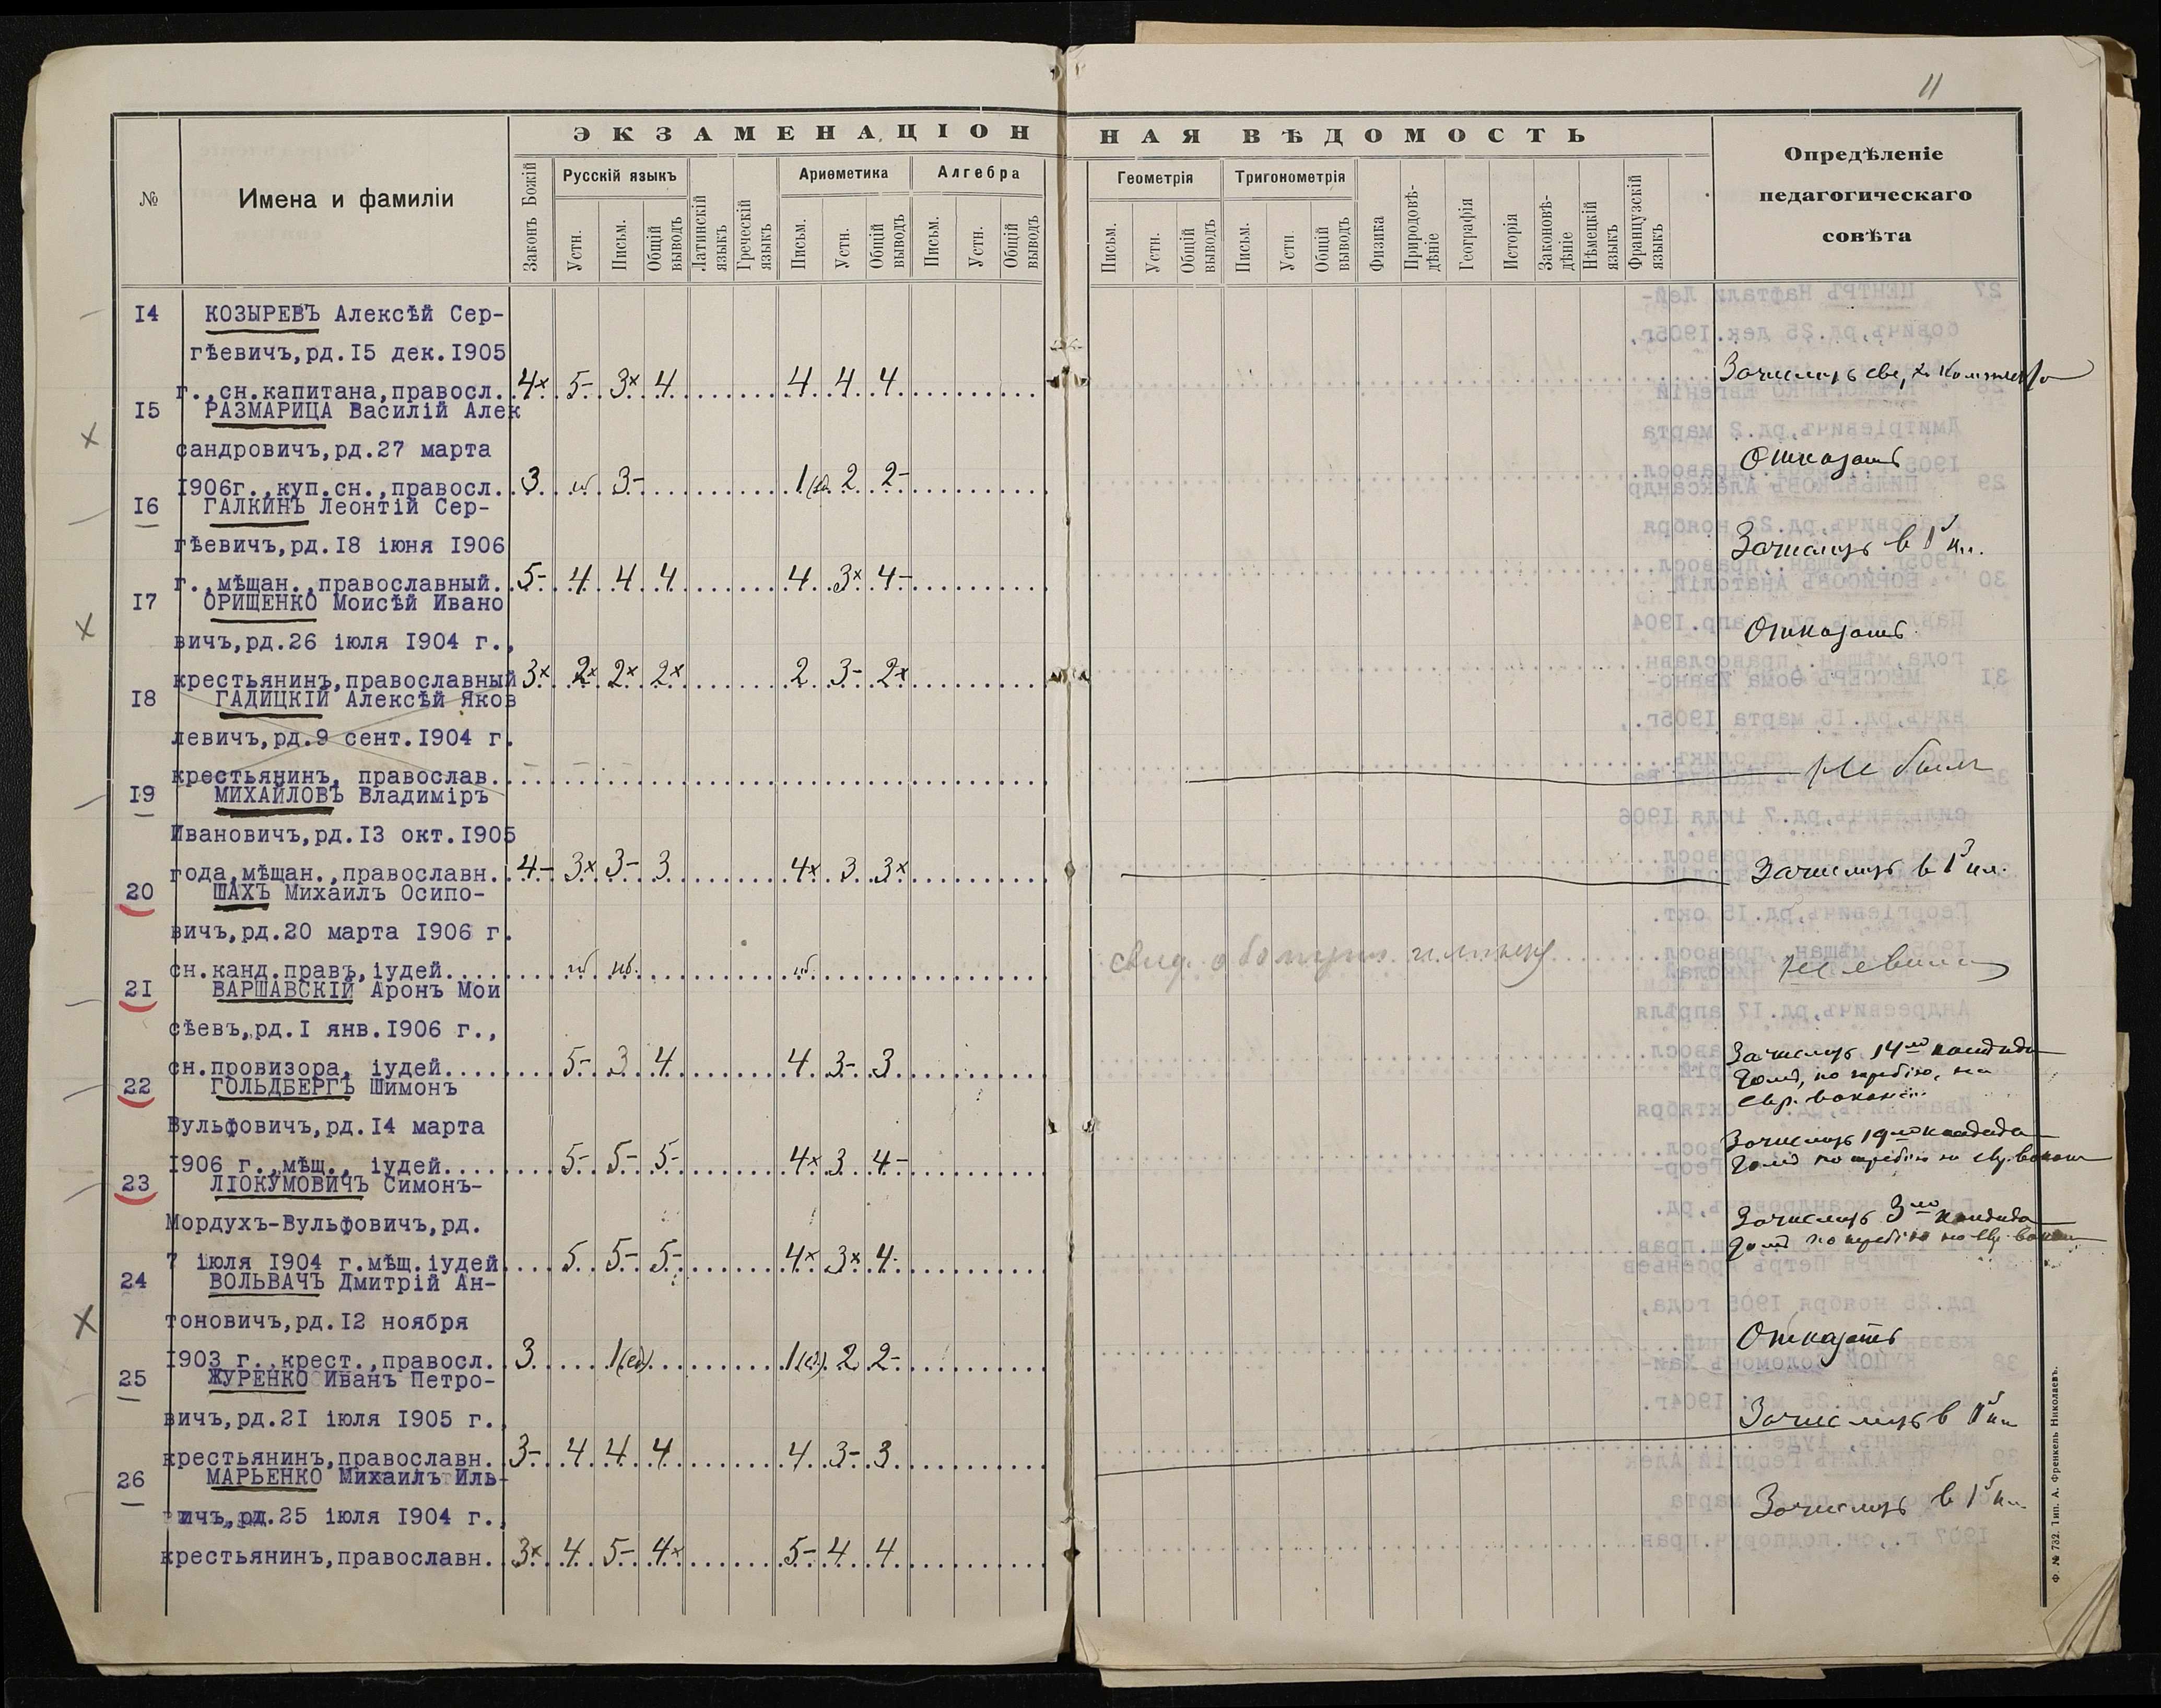 11
ЭКЗАМЕНАЦІОННАЯ ВѢДОМОСТЬ
№
Имена и фамиліи
Законъ Божій
Русскій языкъ
Устн.
Письм.
Общій выводъ
Латинскій языкъ
Греческій языкъ
Ариѳметика
Письм.
Устн.
Общій выводъ
Алгебра
Письм.
Устн.
Общій выводъ
Геометрія
Письм.
Устн.
Общій выводъ
Тригонометрія
Письм.
Устн.
Общій выводъ
Физика
Природовѣ-дѣніе
Географія
Исторія
Законовѣ-дѣніе
Нѣмецкій языкъ
Французскій языкъ
Опредѣленіе
педагогическаго
совѣта
14 КОЗЫРЕВЪ Алексѣй Сер-
гѣевичъ,рд.15 дек.1905
г.,сн.капитана,правосл. 4× 5- 3× 4 4 4 4 Зачислить
15 РАЗМАРИЦА Василій Алек
сандровичъ,рд.27 марта
1906г.,куп.сн.,правосл. 3 нб 3- 1 2 2- Отказать
16 ГАЛКИНЪ Леонтій Сер-
гѣевичъ,рд.18 іюня 1906
г.,мѣщан.,православный. 5- 4 4 4 4 3× 4- Зачислить в 1 кл.
17 ОРИЩЕНКО Моисѣй Ивано
вичъ,рд.26 іюля 1904 г.,
крестьянинъ,православный 3× 2× 2× 2× 2 3- 2× Отказать
18 ГАДИЦКІЙ Алексѣй Яков
левичъ,рд.9 сент.1904 г.
крестьянинъ, православ. Не был
19 МИХАЙЛОВЪ Владиміръ
Ивановичъ,рд.13 окт.1905
года,мѣщан.,православн. 4- 3× 3- 3 4× 3 3× Зачислить в 1 кл.
20 ШАХЪ Михаилъ Осипо-
вичъ,рд.20 марта 1906 г.
сн.канд.правъ,іудей. нб нб. нб Не явился
21 ВАРШАВСКІЙ Аронъ Мои
сѣевъ,рд.1 янв.1906 г.,
сн.провизора, іудей. 5- 3 4 4 3- 3 Зачислить 14м кандида
том, по жребію, на
евр. ваканс.
22 ГОЛЬДБЕРГЪ Шимонъ
Вульфовичъ,рд.14 марта
1906 г.,мѣщ., іудей. 5- 5- 5- 4× 3 4- Зачислить 19м кандида
том по жребію на евр. вакан
23 ЛІОКУМОВИЧЪ Симонъ-
Мордухъ-Вульфовичъ,рд.
7 іюля 1904 г.мѣщ.іудей 5 5- 5- 4× 3× 4- Зачислить 3м кандида
том по жребію на евр. вакан
24 ВОЛЬВАЧЪ Дмитрій Ан-
тоновичъ,рд.12 ноября
1903 г.,крест.,правосл. 3 1(ед) 1(ед) 2 2- Отказать
25 ЖУРЕНКО Иванъ Петро-
вичъ,рд.21 іюля 1905 г.,
крестьянинъ,православн. 3- 4 4 4 4 3- 3 Зачислить в 1 кл
26 МАРЬЕНКО Михаилъ Иль-
ичъ,рд.25 іюля 1904 г.,
крестьянинъ,православн. 3× 4 5- 4× 5- 4 4 Зачислить в 1 кл.
Ф. № 732. Тип. А. Френкель Николаевъ.